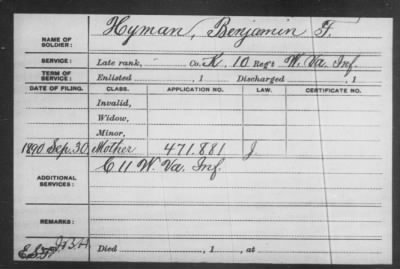 NAME OF SOLDIER: Hyman, Benjamin F.
SERVICE: Late rank, Co. K, 10 Reg't W. Va. Inf.
TERM OF SERVICE: Enlisted , 1 Discharged , 1
DATE OF FILING. CLASS. APPLICATION NO. LAW. CERTIFICATE NO.
Invalid,
Widow,
Minor,
1890 Sep. 30, Mother 471.881 J.
ADDITIONAL SERVICES: C 11 W. Va. Inf.
REMARKS:
Died , 1 , at